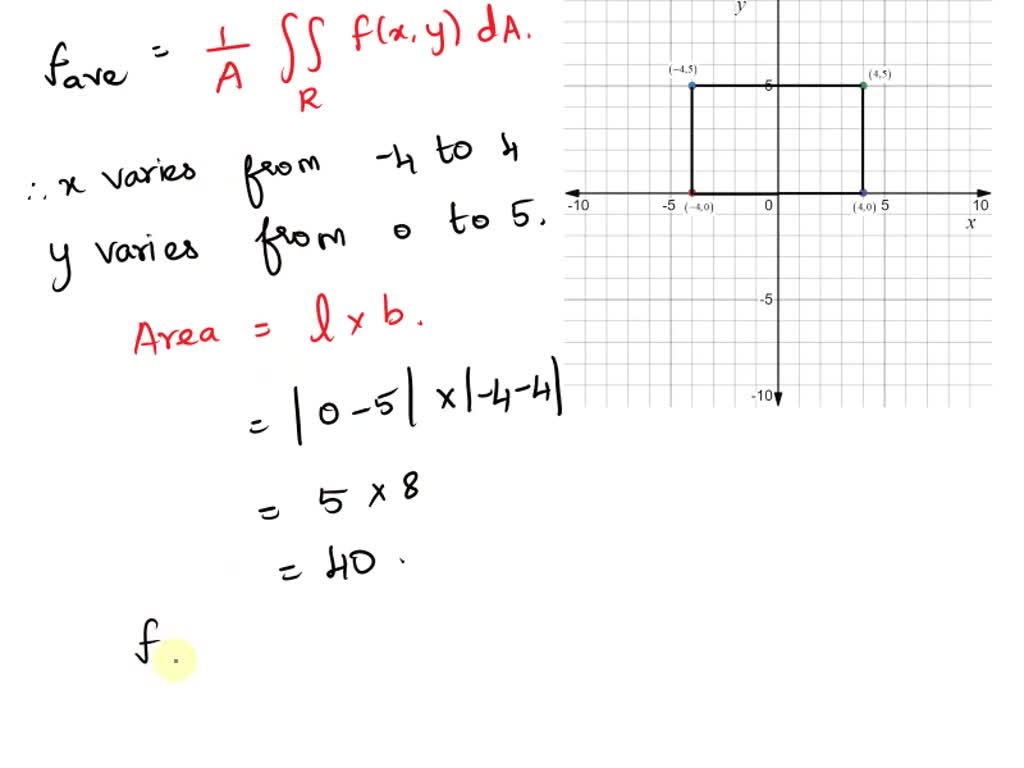 f_ave = 1/A ∬_R f(x,y) dA.
∴ x varies from -4 to 4
y varies from 0 to 5.
Area = l × b.
= |0-5| × |-4-4|
= 5 × 8
= 40.
f
y
(-4,5)
5
(4,5)
-10
-5
(-4,0)
0
(4,0)
5
10
x
-5
-10